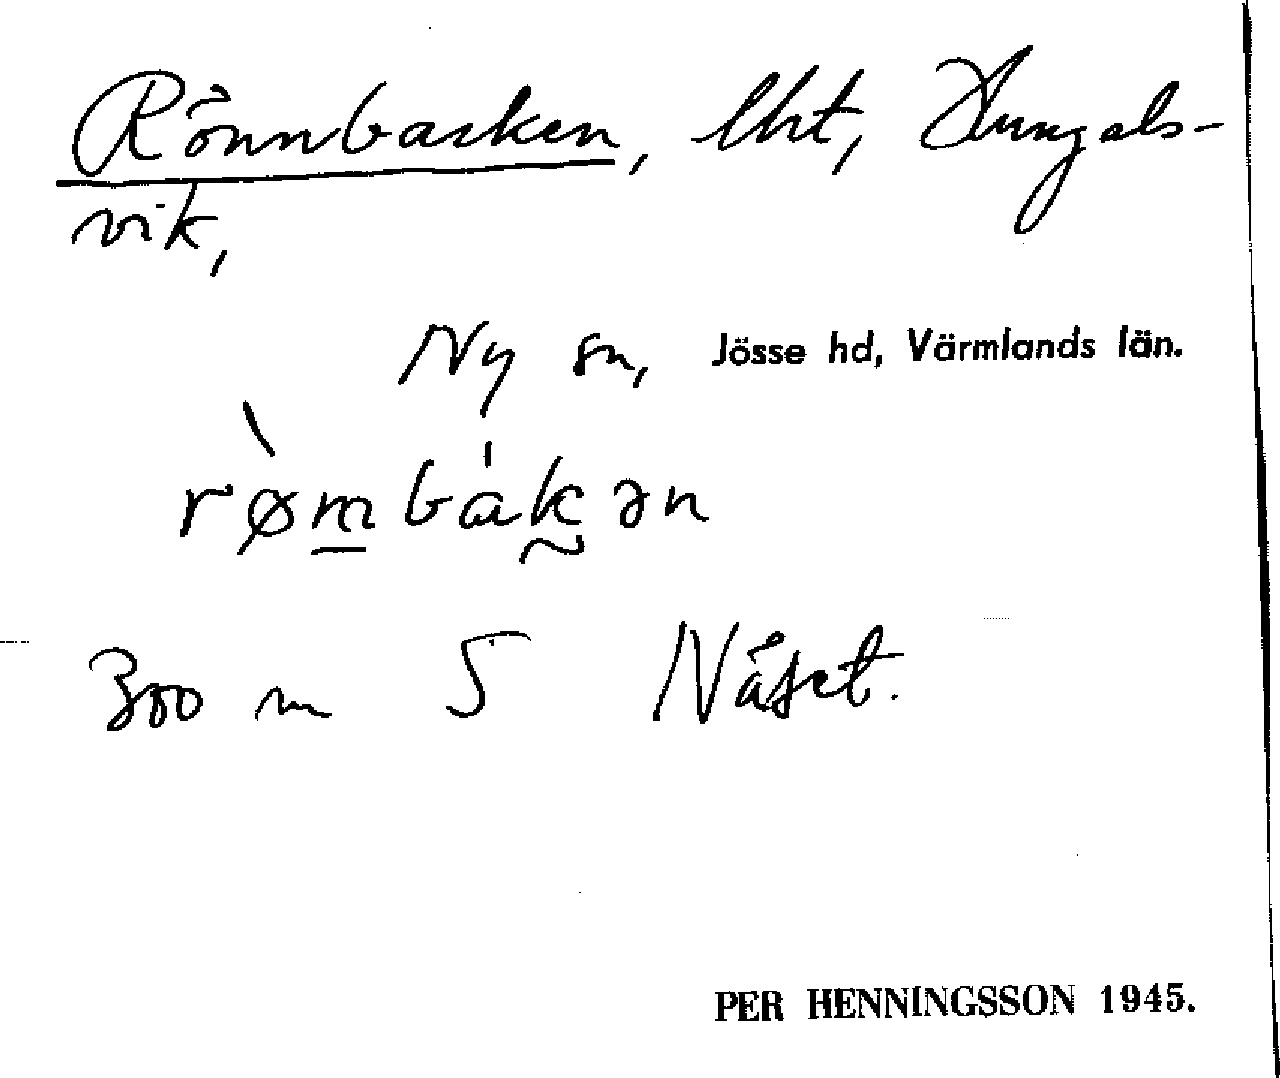 Rönnbacken, lht, Hungals-
vik,
Ny sn, Jösse hd, Värmlands län.
rø̀m̲bákən
300 m S Näset.
PER HENNINGSSON 1945.